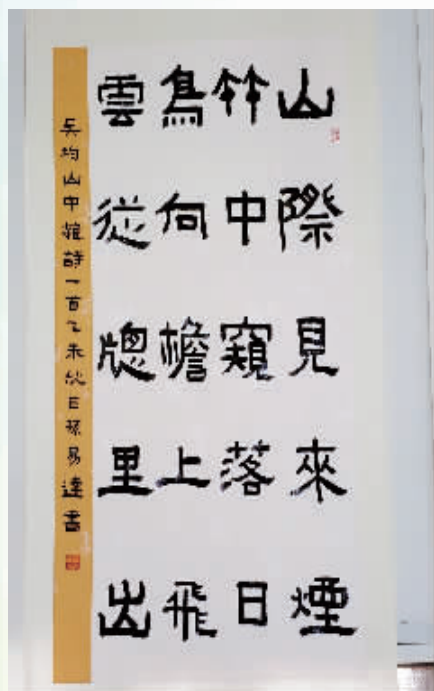 山際見來煙
竹中窺落日
鳥向檐上飛
雲從牕里出
吳均山中雜詩一首乙未秋日孫易達書